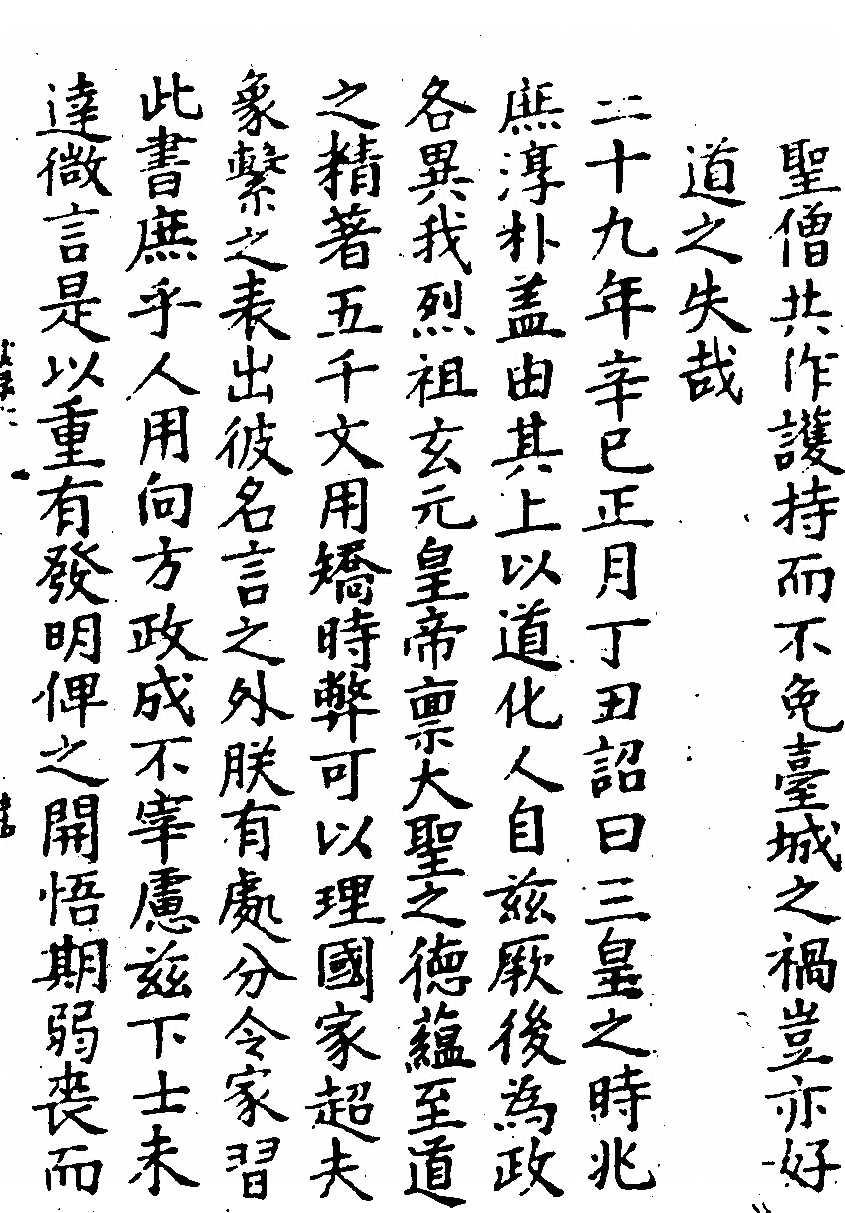 聖僧共作護持而不免臺城之禍豈亦好
道之失哉
二十九年辛巳正月丁丑詔曰三皇之時兆
庶淳朴蓋由其上以道化人自茲厥後為政
各異我烈祖玄元皇帝禀大聖之德蘊至道
之精著五千文用矯時弊可以理國家超夫
象繫之表出彼名言之外朕有處分令家習
此書庶乎人用向方政成不宰慮茲下士未
達微言是以重有發明俾之開悟期弱喪而